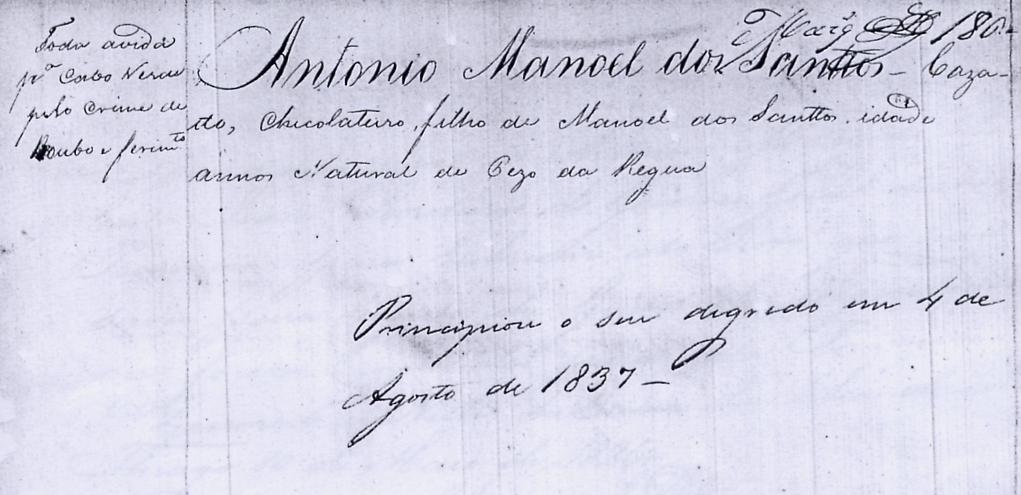 Toda avida
pª Cabo Verde
pelo crime de
Roubo e ferimtº
Antonio Manoel dos Santtos - Caza-
do, Chicolateiro, filho de Manoel dos Santtos. idade
annos Natural de Pezo da Regua
Principiou o seu degredo em 4 de
Agosto de 1837 -